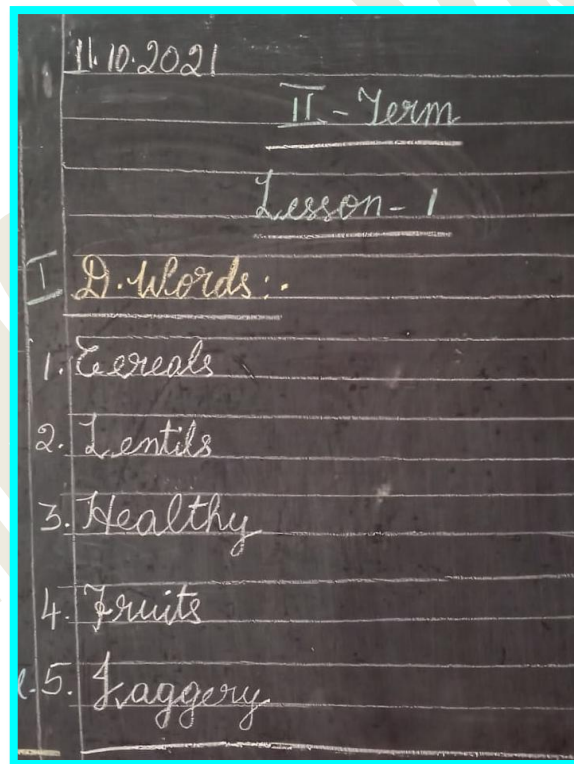 11.10.2021
II - Term
Lesson - 1
I D. Words:-
1. Cereals
2. Lentils
3. Healthy
4. Fruits
5. Jaggery